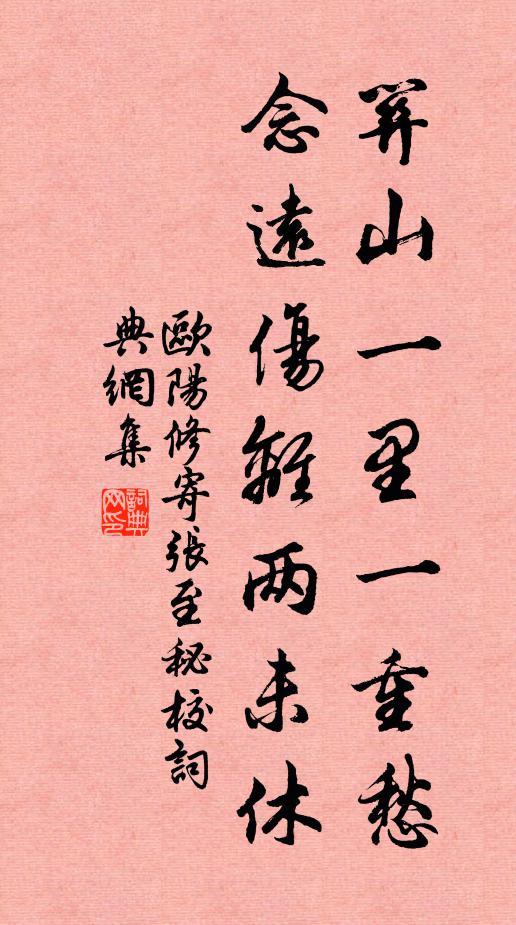 關山一里一重愁
念遠傷離两未休
歐陽修寄張至秘校詞
典網集
詞典
网印